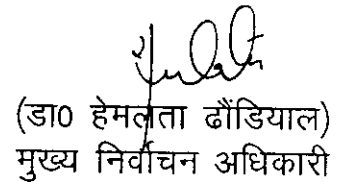 (डा0 हेमलता ढौंडियाल)
मुख्य निर्वाचन अधिकारी